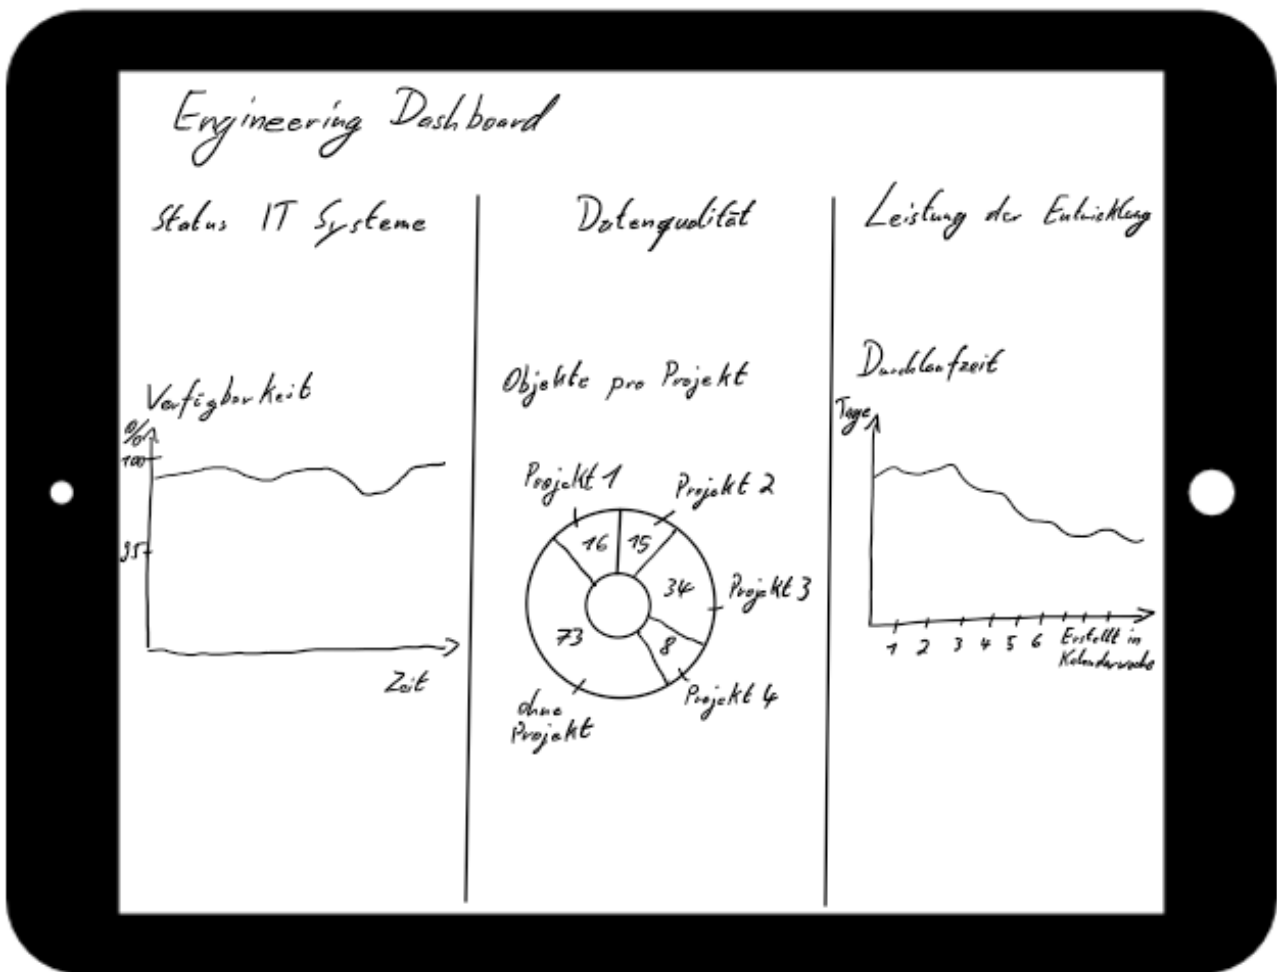 Engineering Dashboard
Status IT Systeme
Verfügbarkeit
%
100
95
Zeit
Datenqualität
Objekte pro Projekt
Projekt 1
Projekt 2
16
15
34
Projekt 3
73
8
Projekt 4
ohne
Projekt
Leistung der Entwicklung
Durchlaufzeit
Tage
1 2 3 4 5 6
Erstellt in
Kalenderwoche